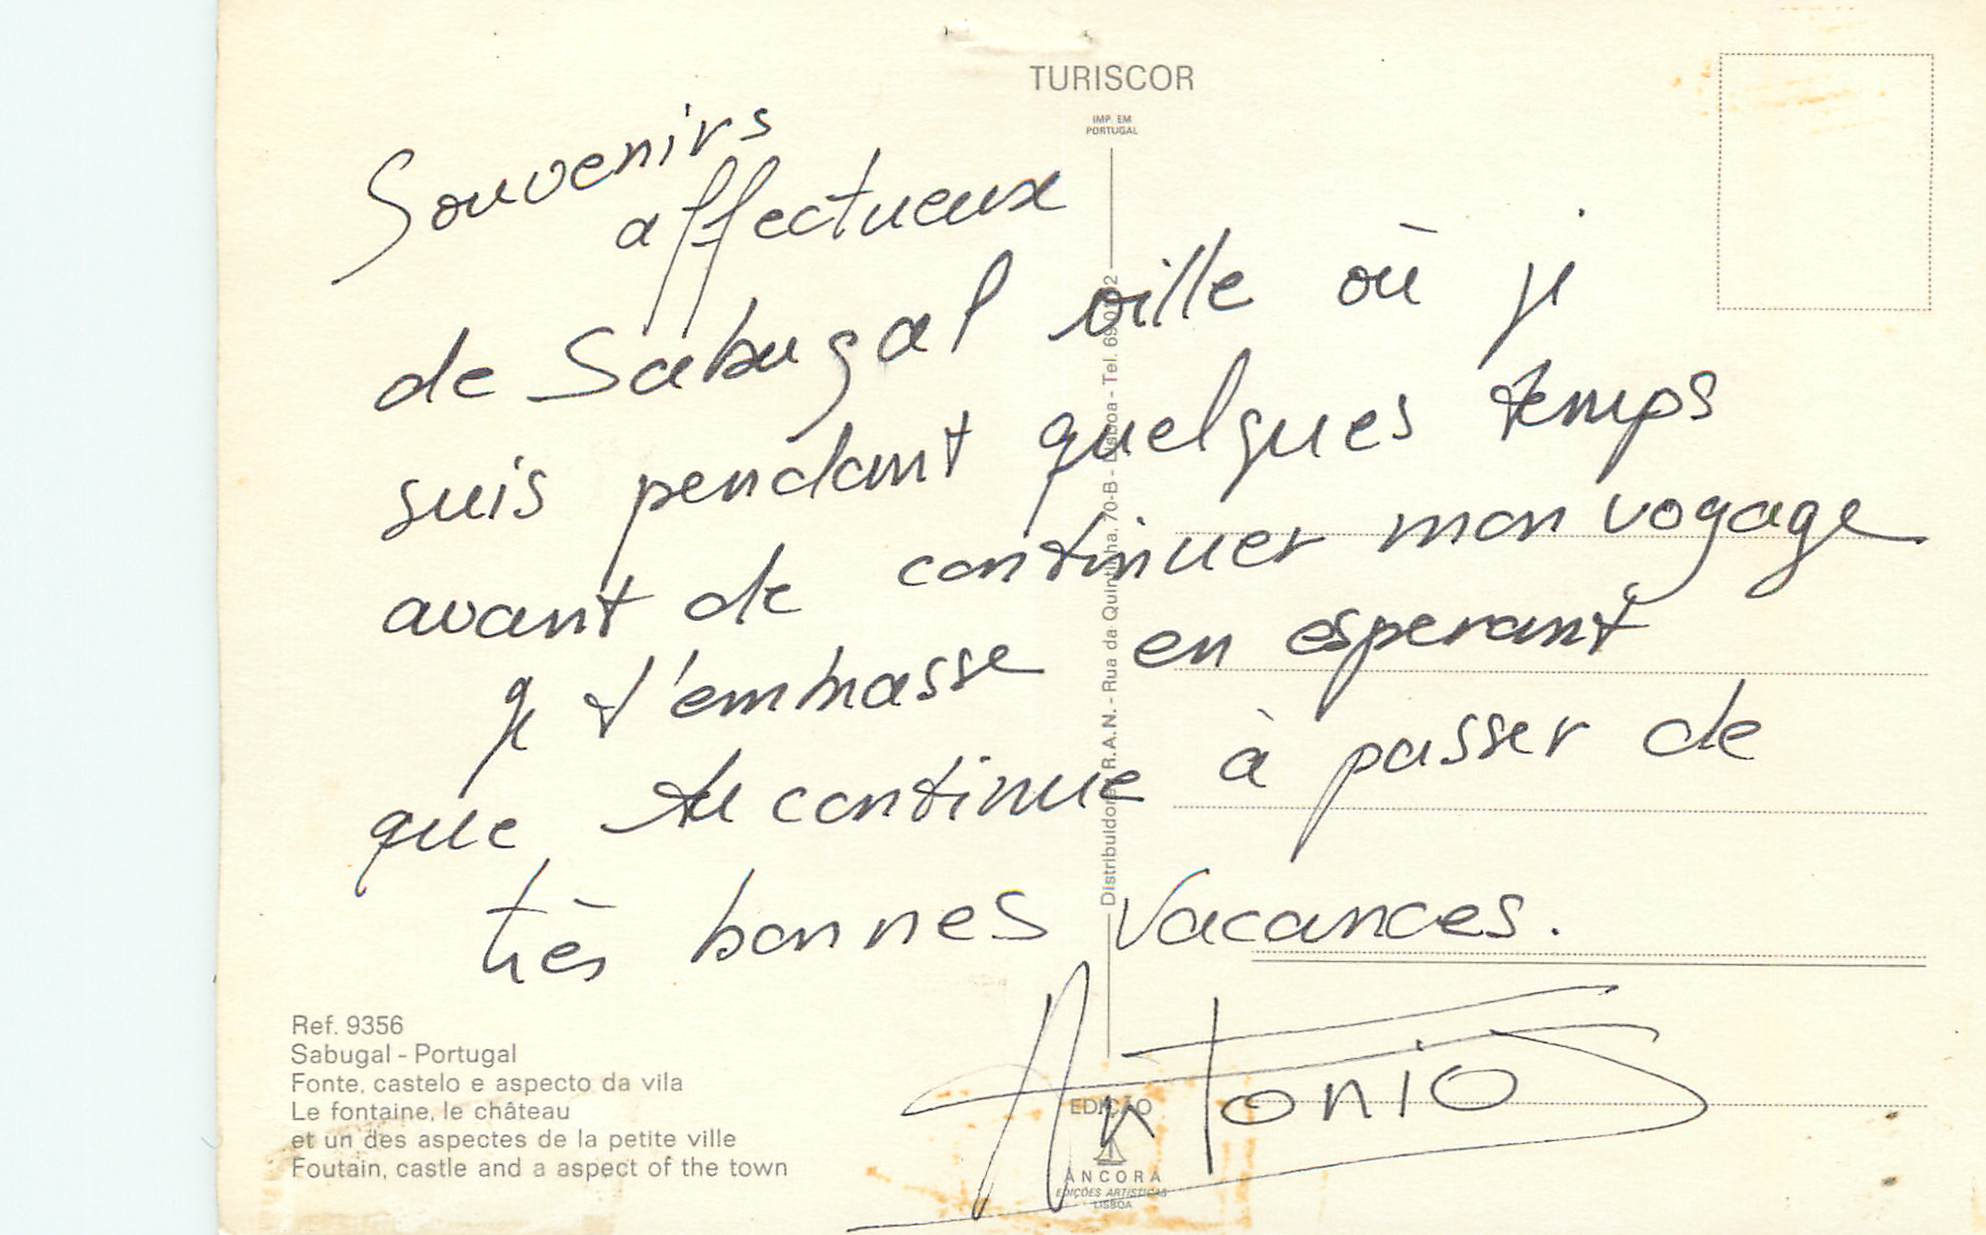 TURISCOR
IMP. EM
PORTUGAL
Souvenirs
affectueux
de Sabugal ville où je
suis pendant quelques temps
avant de continuer mon voyage
Je t'embrasse en esperant
que tu continue à passer de
très bonnes vacances.
Antonio
Distribuidores R.A.N. - Rua da Quintinha, 70-B - Lisboa - Tel.
Ref. 9356
Sabugal - Portugal
Fonte, castelo e aspecto da vila
Le fontaine, le château
et un des aspectes de la petite ville
Foutain, castle and a aspect of the town
EDIÇÃO
ÂNCORA
EDIÇÕES ARTÍSTICAS
LISBOA